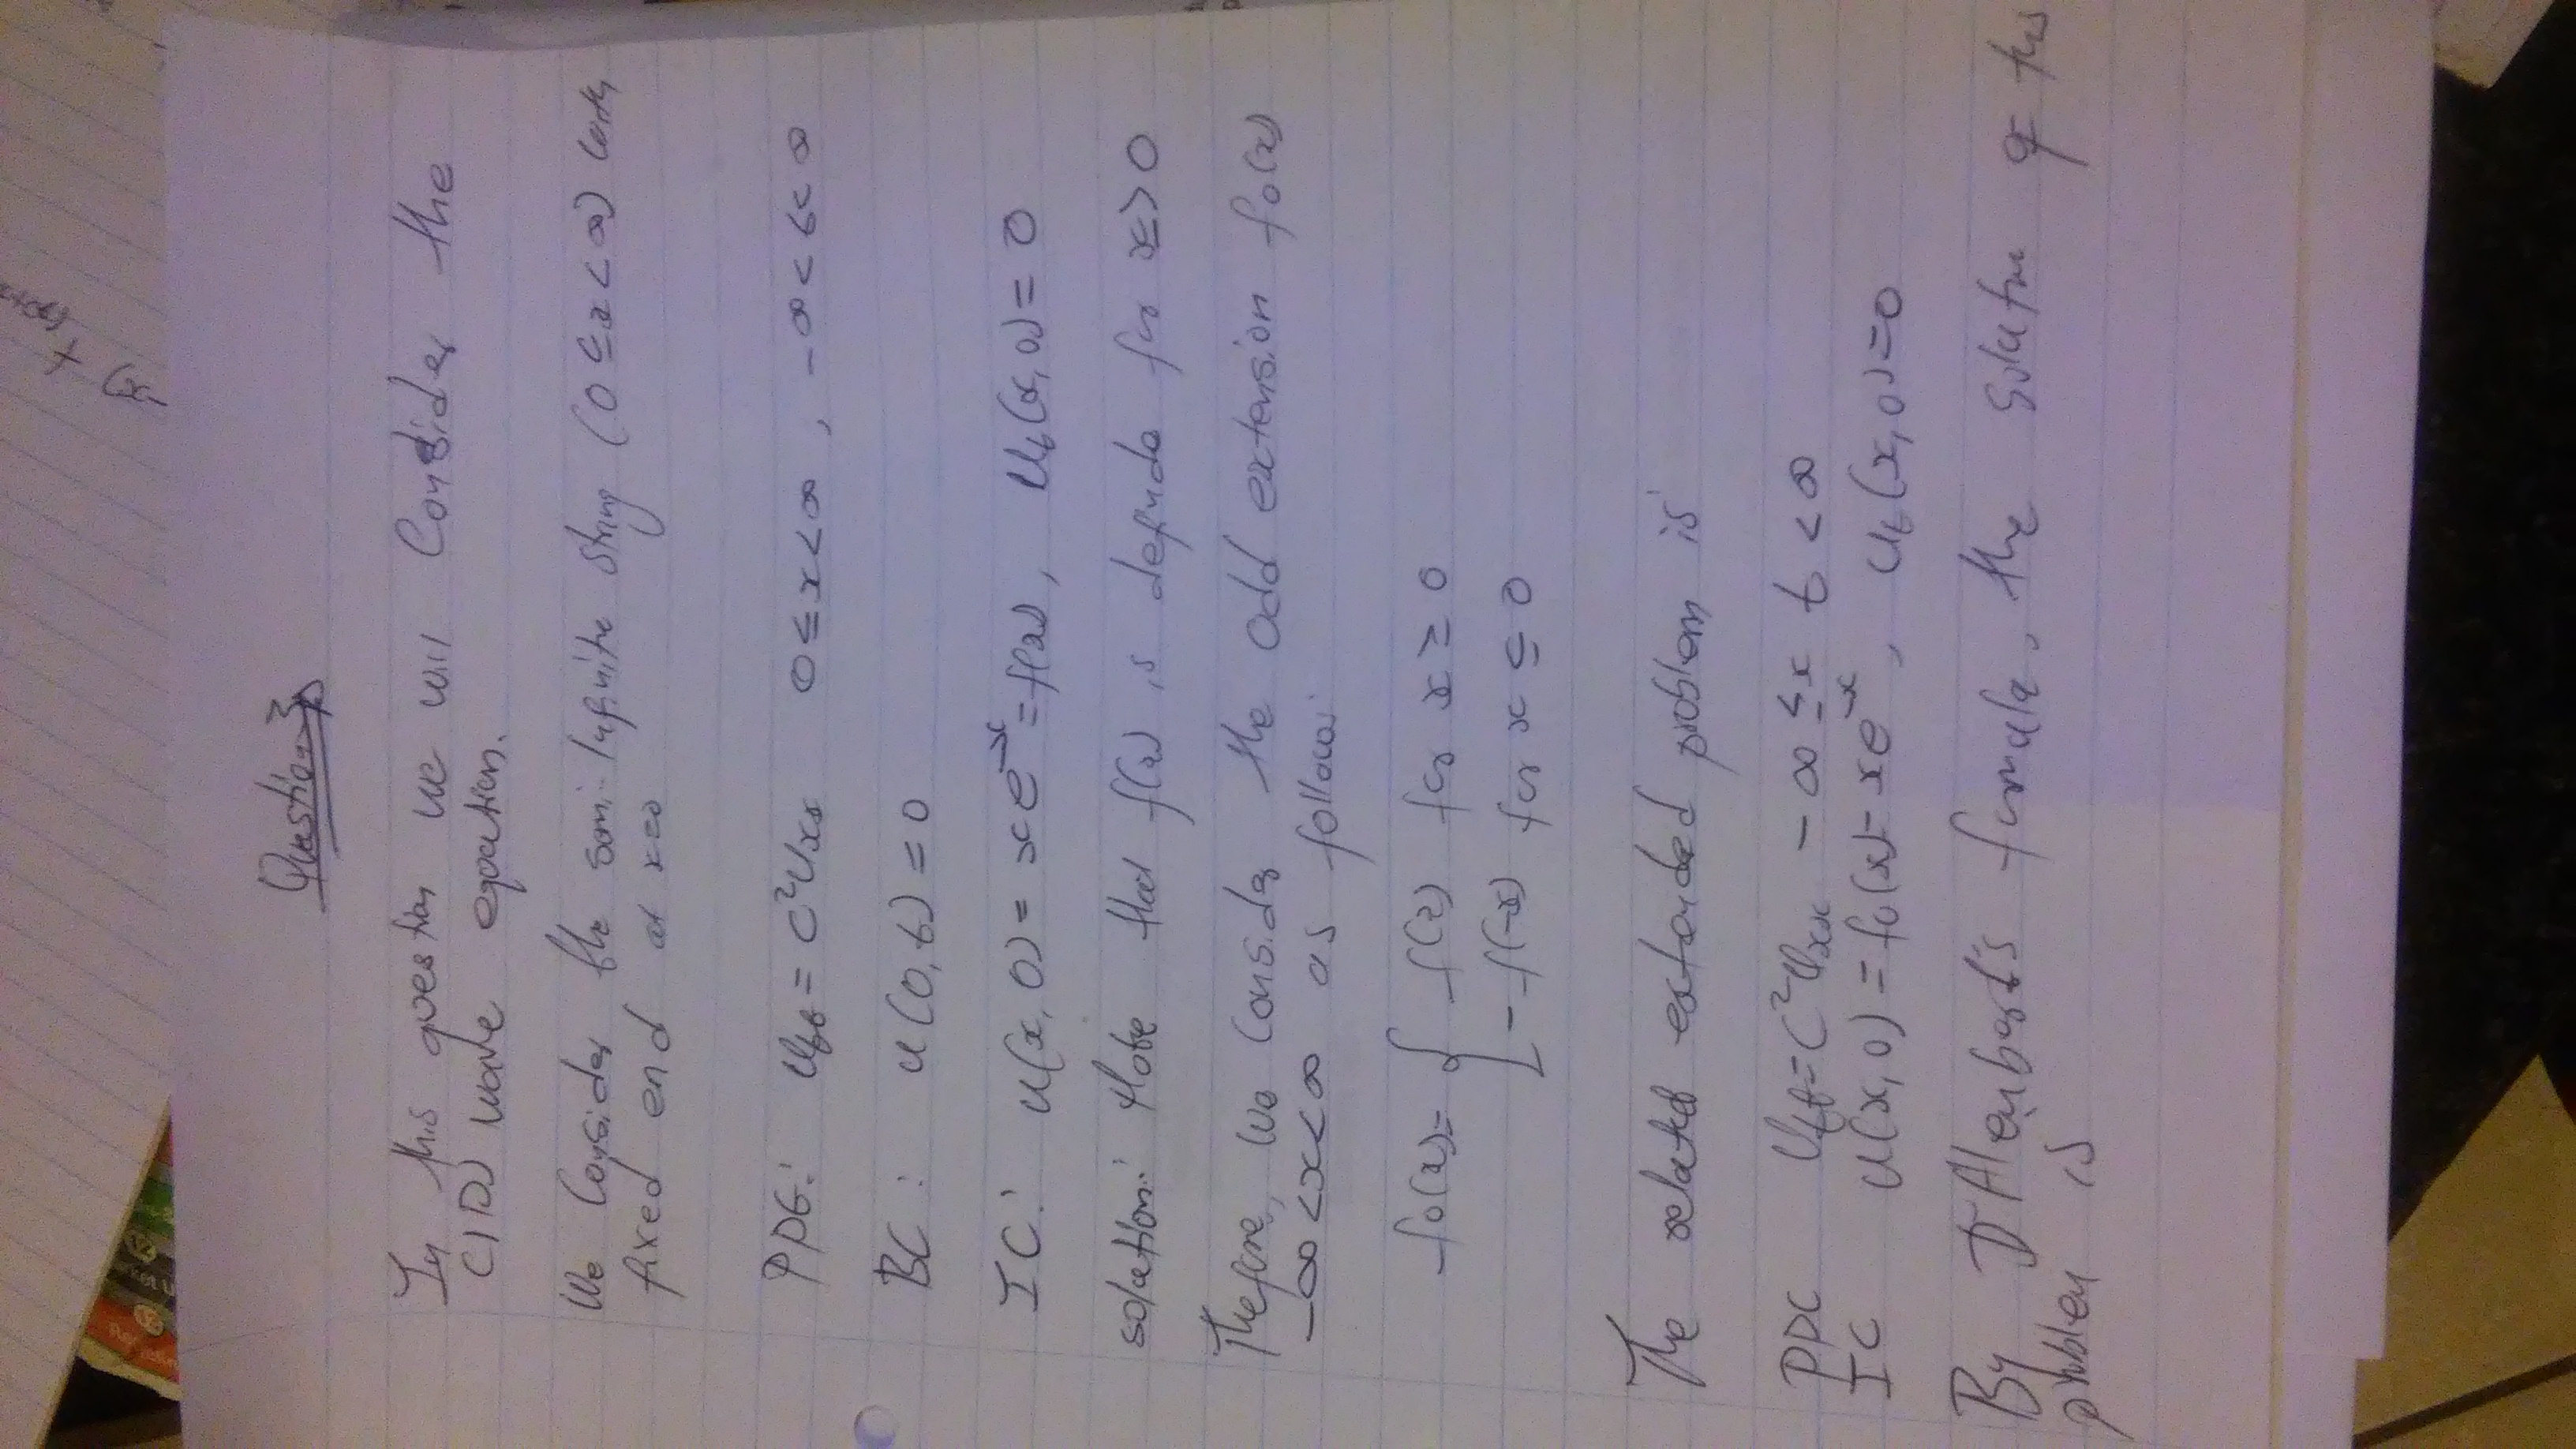 Question 3
In this question we will Consider the
(1D) wave equation.
We Consider the semi-Infinite string (0 ≤ x < ∞) with
fixed end at x=0
PDE: u_tt = c²u_xx 0 ≤ x < ∞, -∞ < t < ∞
BC: u(0,t) = 0
IC: u(x,0) = xe^-x = f(x), u_t(x,0) = 0
solution: Note that f(x) is defined for x>0
Therefore, we Consider the odd extension fo(x)
-∞ < x < ∞ as follows:
fo(x) = { f(x) for x ≥ 0
- f(-x) for x ≤ 0
The related extended problem is
PDE u_tt = c²u_xx - ∞ ≤ x t < ∞
IC u(x,0) = fo(x) = xe^-x, u_t(x,0) = 0
By D'Alembert's formula, the solution of this
problem is